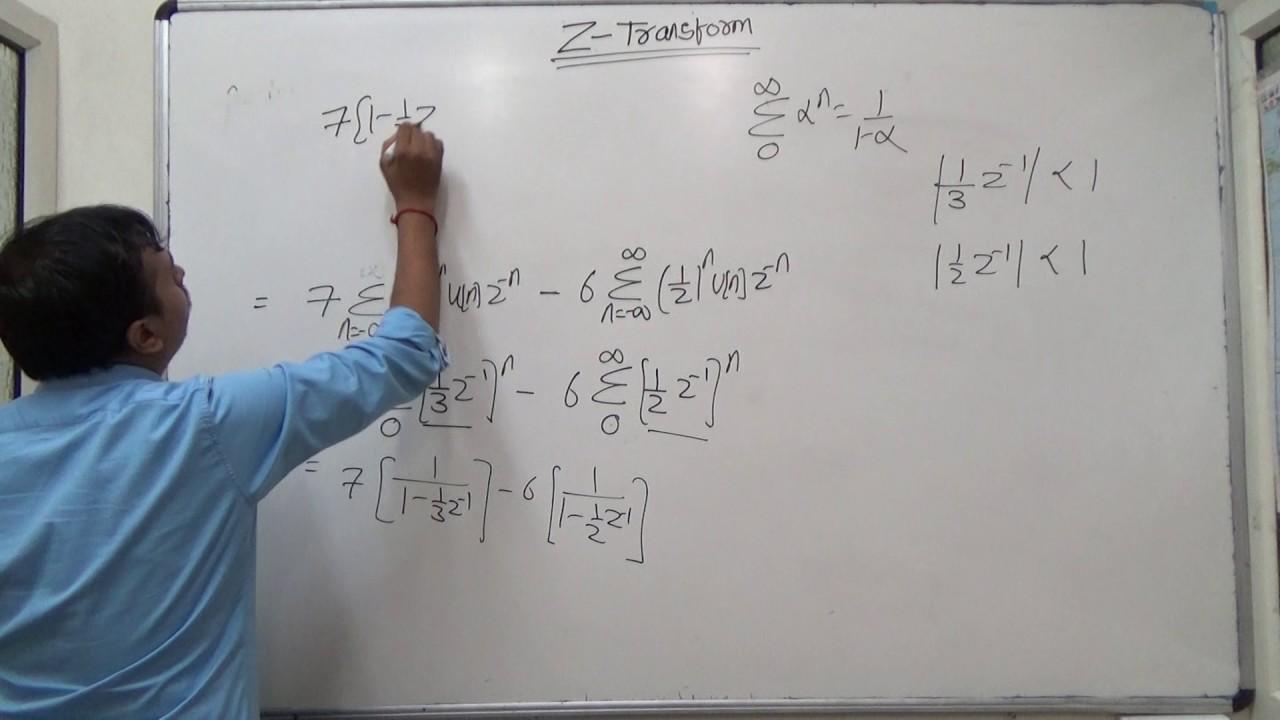 Z-Transform
7{1-1/2
∞ Σ 0 α^n = 1/(1-α)
|1/3 z^-1| < 1
|1/2 z^-1| < 1
= 7 Σ n=-∞ ^n u[n] z^-n - 6 ∞ Σ n=-∞ (1/2)^n u[n] z^-n
0 [1/3 z^-1]^n - 6 ∞ Σ 0 [1/2 z^-1]^n
= 7 [1/(1-1/3 z^-1)] - 6 [1/(1-1/2 z^-1)]